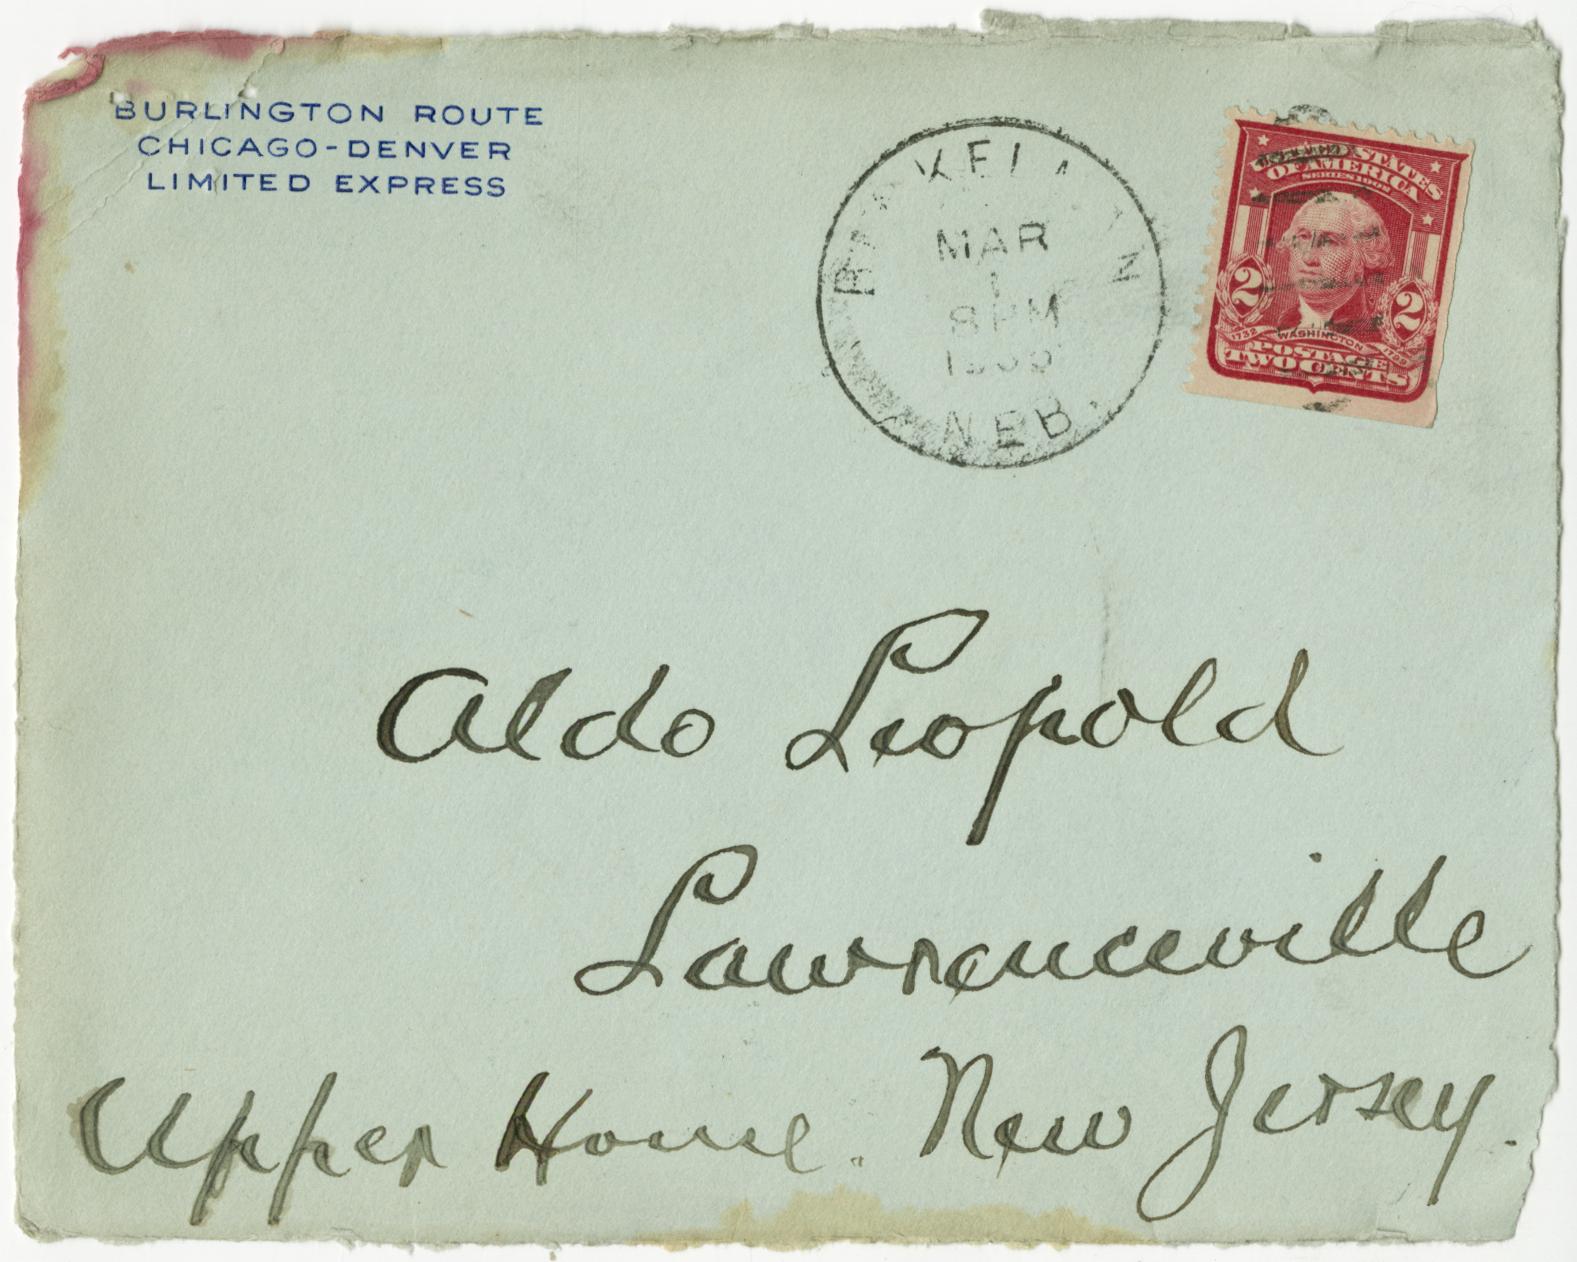 BURLINGTON ROUTE
CHICAGO-DENVER
LIMITED EXPRESS
MAR
1
8 PM
NEB.
UNITED STATES
OF AMERICA
SERIES 1902
2 2
1732 WASHINGTON 1799
POSTAGE
TWO CENTS
Aldo Leopold
Lawrenceville
Upper House. New Jersey.